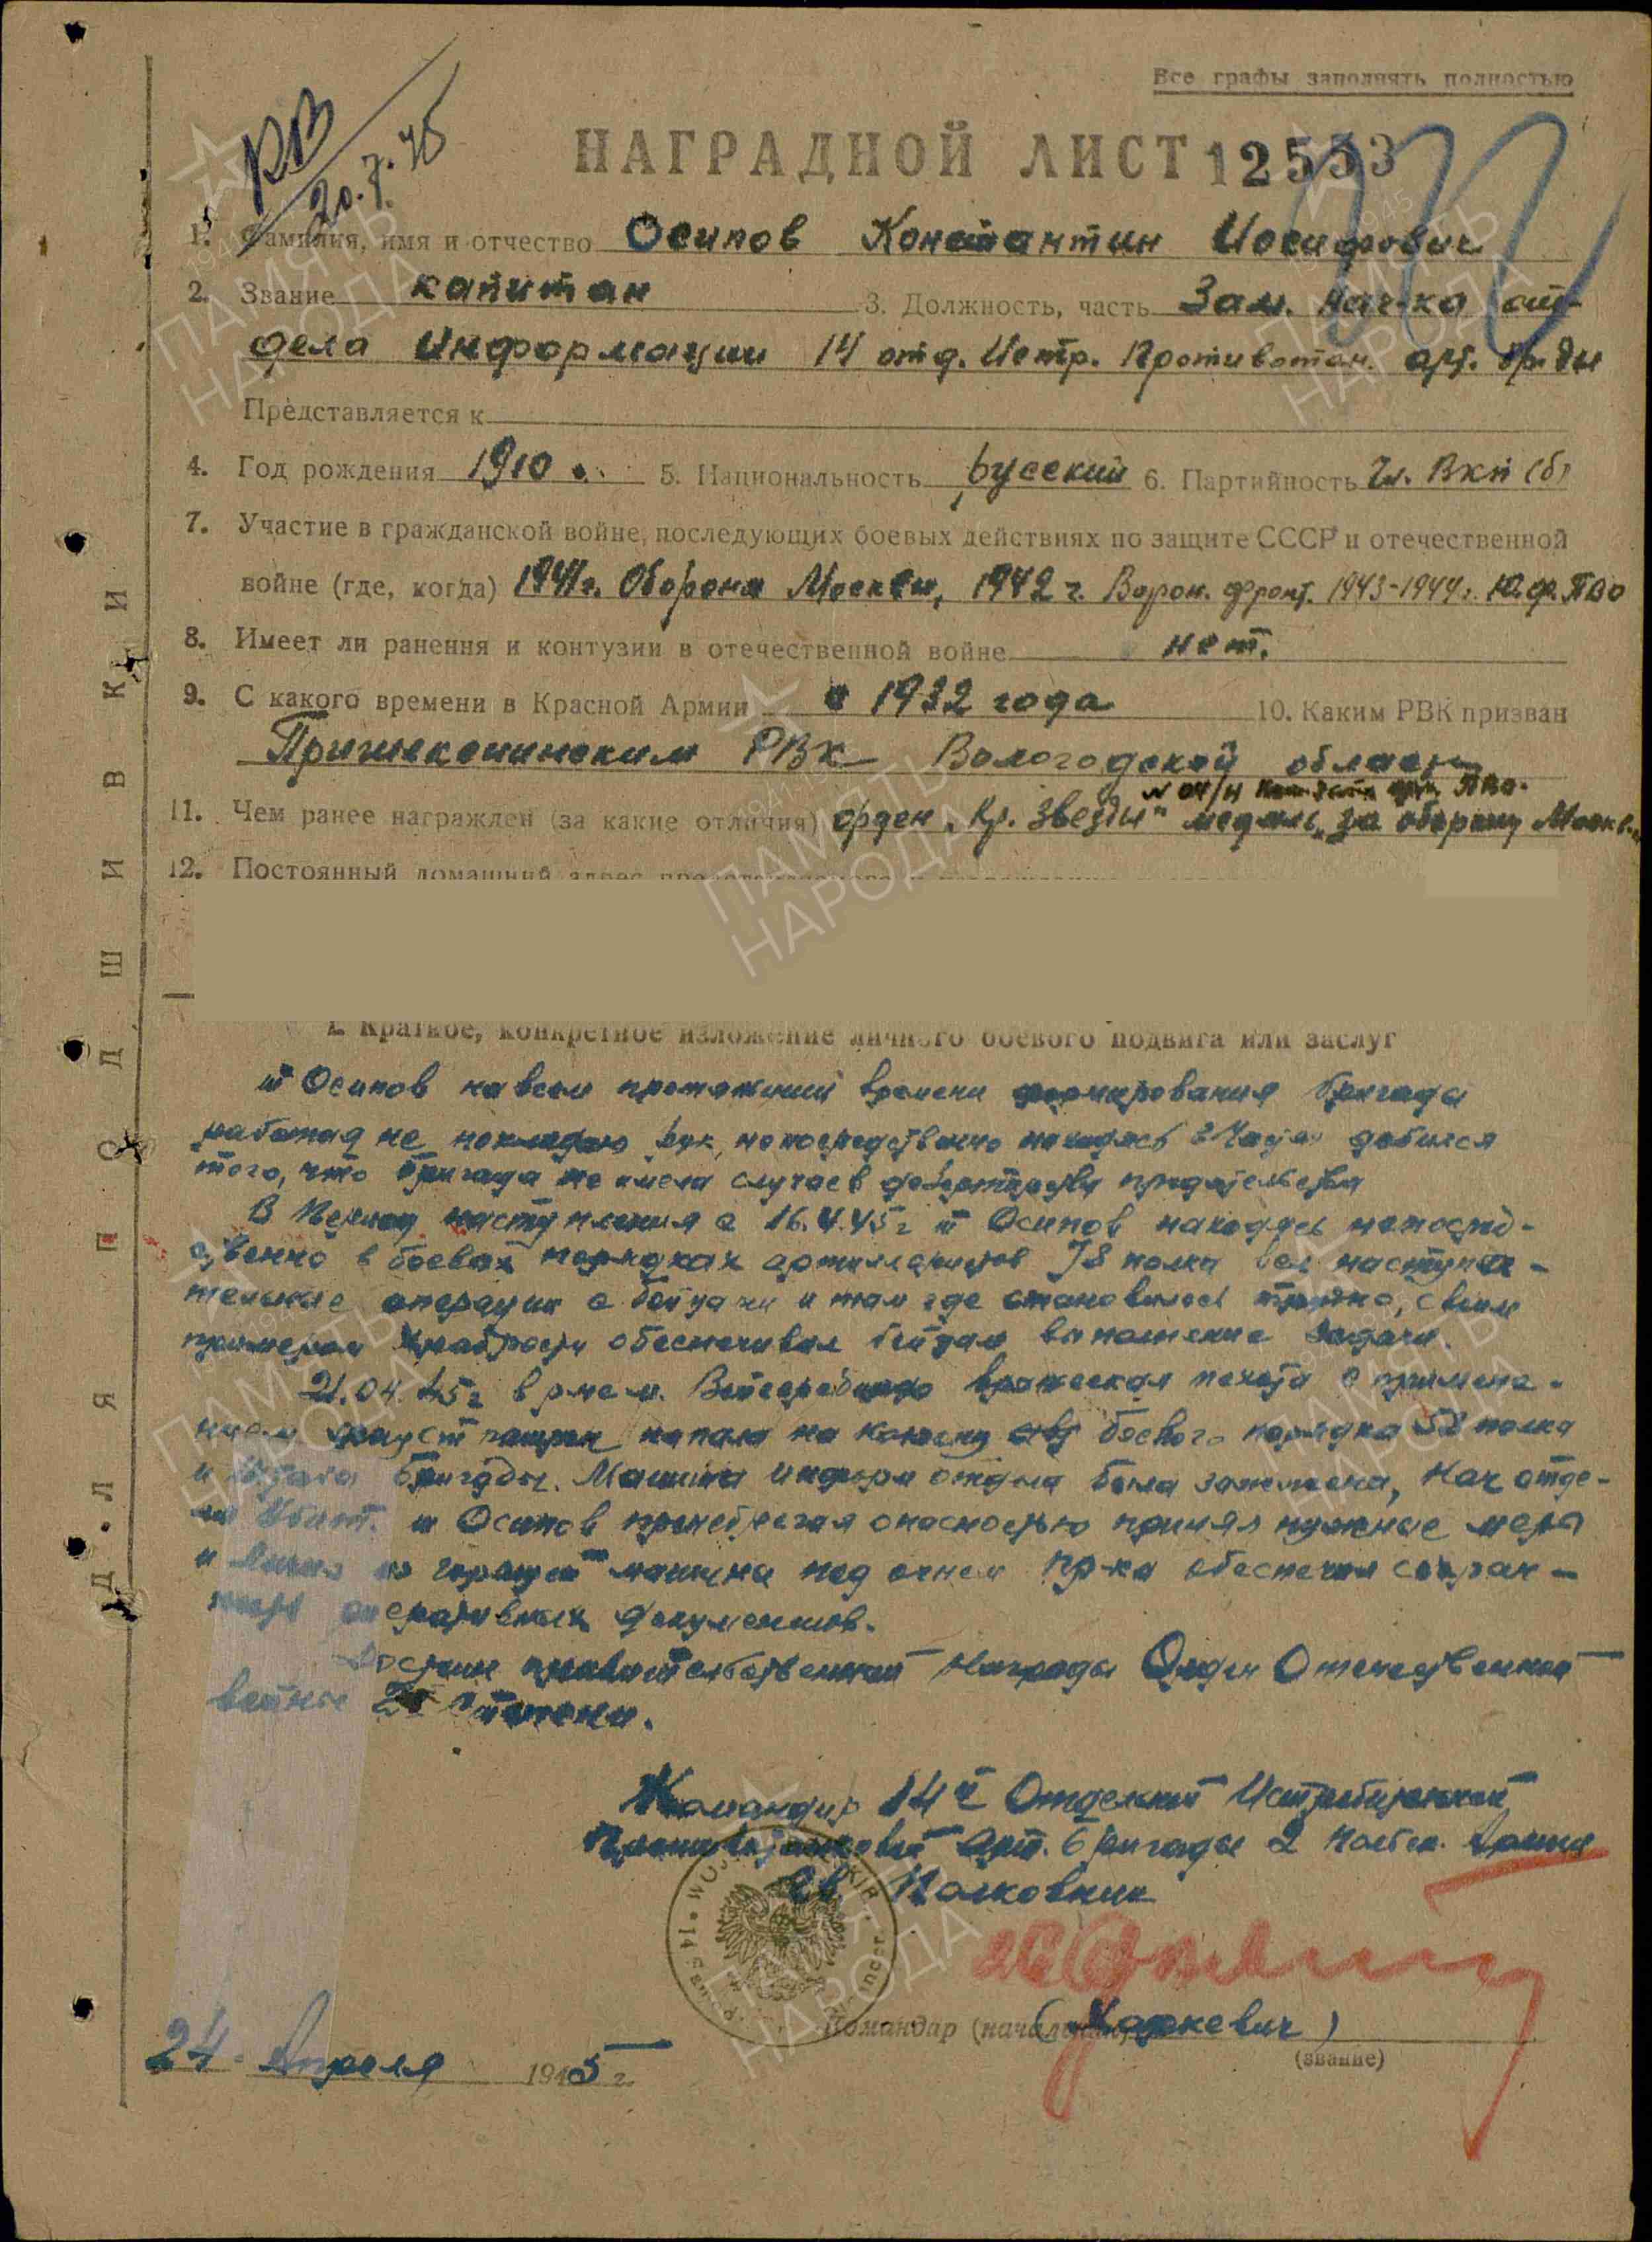 Все графы заполнять полностью
РВ
20.7.45
НАГРАДНОЙ ЛИСТ 12553
1. Фамилия, имя и отчество Осипов Константин Иосифович
2. Звание капитан 3. Должность, часть Зам. нач-ка от-
дела Информации 14 отд. Истр. Противотан. арт. бр-ды
Представляется к
4. Год рождения 1910 5. Национальность русский 6. Партийность Чл. ВКП(б)
7. Участие в гражданской войне, последующих боевых действиях по защите СССР и отечественной
войне (где, когда) 1941г. Оборона Москвы, 1942 г. Ворон. фронт. 1943-1944г. Ю.ф. ПВО
8. Имеет ли ранения и контузии в отечественной войне нет.
9. С какого времени в Красной Армии с 1932 года 10. Каким РВК призван
Пришекснинским РВК Вологодской области
№ 04/н ПВО.
11. Чем ранее награжден (за какие отличия) орден „Кр. Звезды" медаль „за оборону Москвы"
12. Постоянный домашний адрес
I. Краткое, конкретное изложение личного боевого подвига или заслуг
к Осипов на всем протяжении времени формирования бригады
работая не покладая рук, непосредственно находясь в частях добился
того, что бригада не имела случаев дезертирства предательства
В период наступления с 16.4.45г к Осипов находясь непосред-
ственно в боевых порядках артиллеристов 78 полка вел наступа-
тельные операции с бойцами и там где становилось трудно, своим
примером храбрости обеспечивал бойцам выполнение задачи.
21.04.45г в р-не м. вражеская пехота с примене-
нием фауст патрон напала на колонну боевого порядка 58 полка
и штаба бригады. Машина информ отдела была зажжена, Нач отде-
ла Убит. к Осипов пренебрегая опасностью принял нужные меры
и лично из горящей машины под огнем пр-ка обеспечил сохран-
ность оперативных документов.
Достоин правительственной награды Орден Отечественной
войны 2й степени.
Командир 14й Отдельной Истребительной
Противотанковой Арт. бригады 2 Польск. Армии
Полковник
Командир (начальник) (Харкевич)
(звание)
24 Апреля 1945 г.
ДЛЯ ПОДШИВКИ
ПАМЯТЬ НАРОДА
1941-1945
ПАМЯТЬ НАРОДА
1941-1945
ПАМЯТЬ НАРОДА
1941-1945
ПАМЯТЬ НАРОДА
1941-1945
ПАМЯТЬ НАРОДА
1941-1945
ПАМЯТЬ НАРОДА